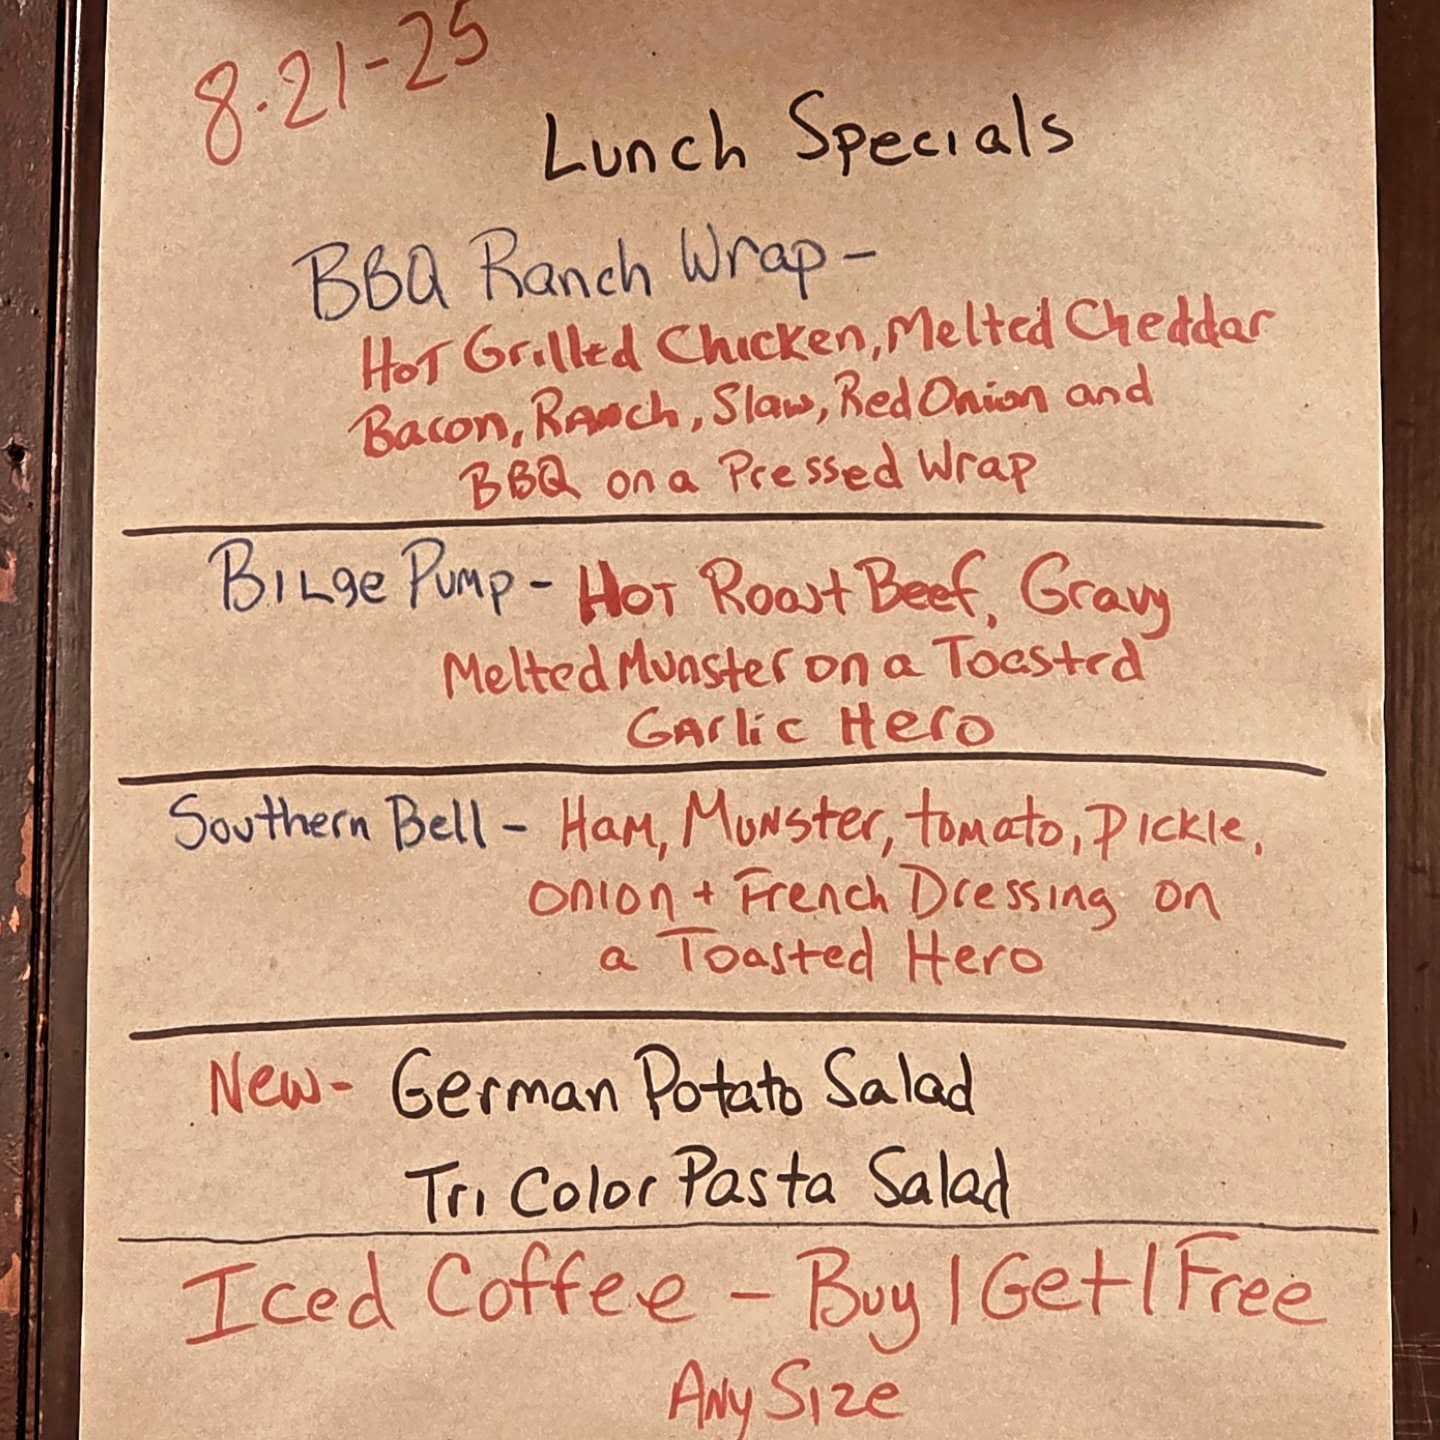 8-21-25
Lunch Specials
BBQ Ranch Wrap -
Hot Grilled Chicken, Melted Cheddar
Bacon, Ranch, Slaw, Red Onion and
BBQ on a Pressed Wrap
Bilge Pump - Hot Roast Beef, Gravy
Melted Munster on a Toasted
Garlic Hero
Southern Bell - Ham, Munster, tomato, Pickle,
onion + French Dressing on
a Toasted Hero
New- German Potato Salad
Tri Color Pasta Salad
Iced Coffee - Buy 1 Get 1 Free
Any Size